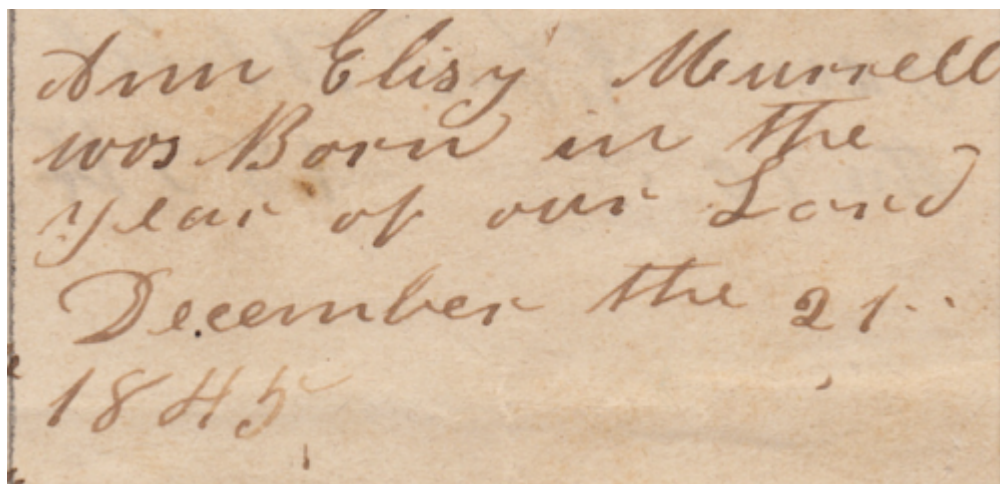 Ann Elisy Murrell
wos Born in the
year of our Lord
December the 21
1845